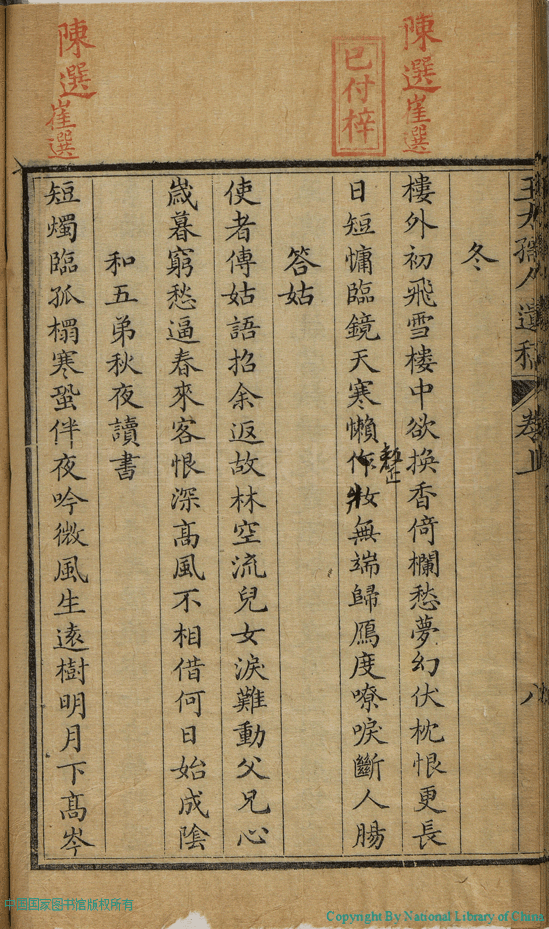 王太孺人遺稿 卷上 八
陳選
崔選
已付梓
冬
樓外初飛雪樓中欲換香倚欄愁夢幻伏枕恨更長
日短慵臨鏡天寒懶作妝無端歸鴈度嘹唳斷人腸
整
答姑
使者傳姑語招余返故林空流兒女淚難動父兄心
歲暮窮愁逼春來客恨深高風不相借何日始成陰
和五弟秋夜讀書
陳選
崔選
短燭臨孤榻寒蛩伴夜吟微風生遠樹明月下高岑
中国国家图书馆版权所有
Copyright By National Library of China